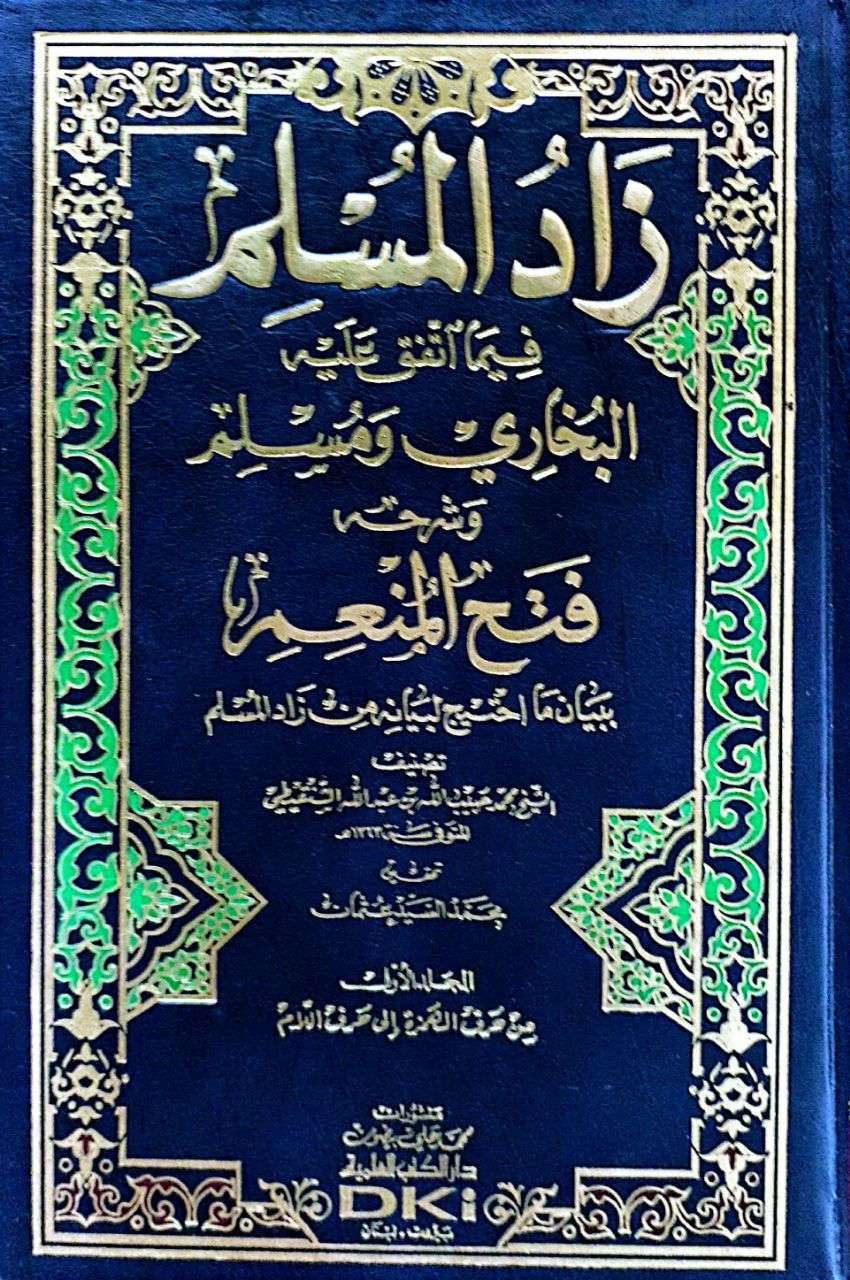 زَادُ المُسْلِمِ
فِيمَا اتَّفَقَ عَلَيْهِ
البُخَارِي وَمُسْلِم
وَشَرْحُه
فَتْحُ المُنْعِمِ
ببَيَان مَا احْتيج لبَيَانِه مِن زَاد المُسْلم
تصنيف
الشيخ محمد حبيب الله بن عبد الله الشنقيطي
المتوفى سنة ١٣٦٣هـ
تحقيق
محمد السيد عثمان
المجلد الأول
من حرف الهمزة إلى حرف اللام
منشورات
محمد علي بيضون
دار الكتب العلمية
DKi
بيروت - لبنان